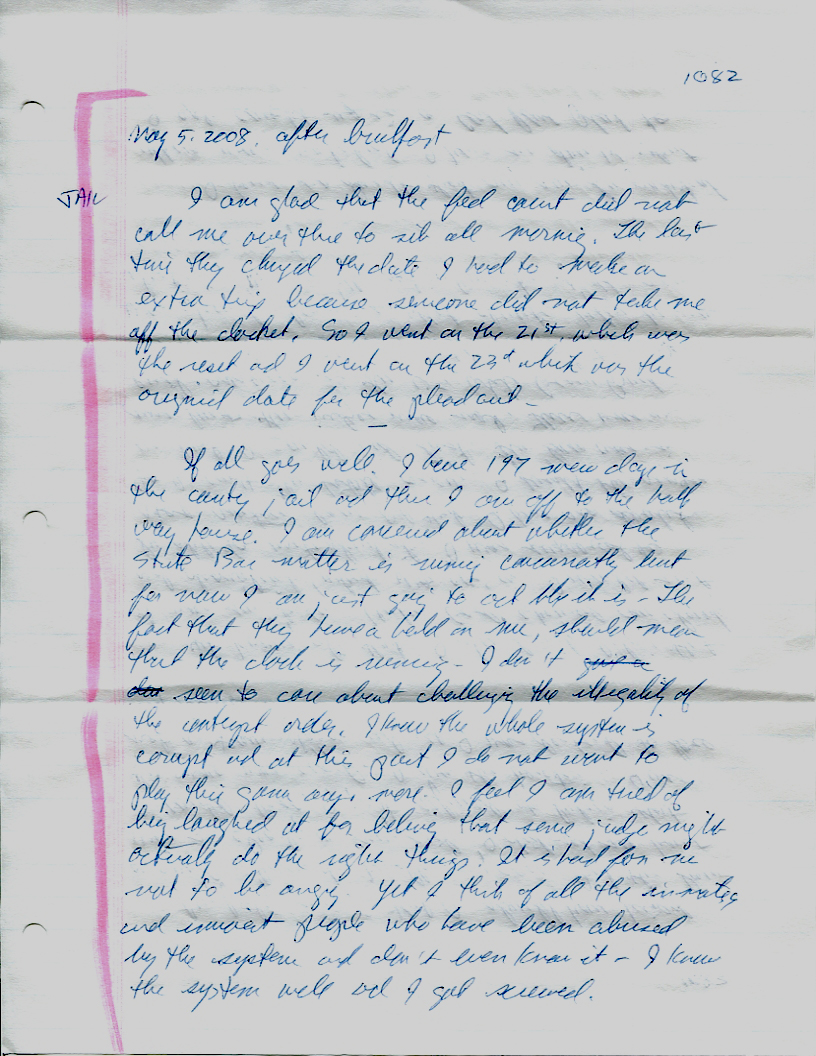 1082
May 5. 2008. after breakfast
JAIL
I am glad that the fed court did not
call me over there to sit all morning. The last
time they changed the date I had to make an
extra trip because someone did not take me
off the docket. So I went on the 21st, which was
the reset ad I went on the 23d which was the
original date for the plead out -
If all goes well. I have 197 more days in
the county jail ad then I am off to the half
way house. I am concerned about whether the
State Bar matter is running concurrently but
for now I am just going to act like it is - The
fact that they have a hold on me, should mean
that the clock is running - I don't give a
dam seem to care about challenging the illegality of
the contempt order. I know the whole system is
corrupt ad at this point I do not want to
play this game any more. I feel I am tired of
being laughed at for beliving that some judge might
actually do the right things. It is hard for me
not to be angry. Yet I think of all the inmates
and innocent people who have been abused
by the system ad don't even know it - I knew
the system well ad I got screwed.